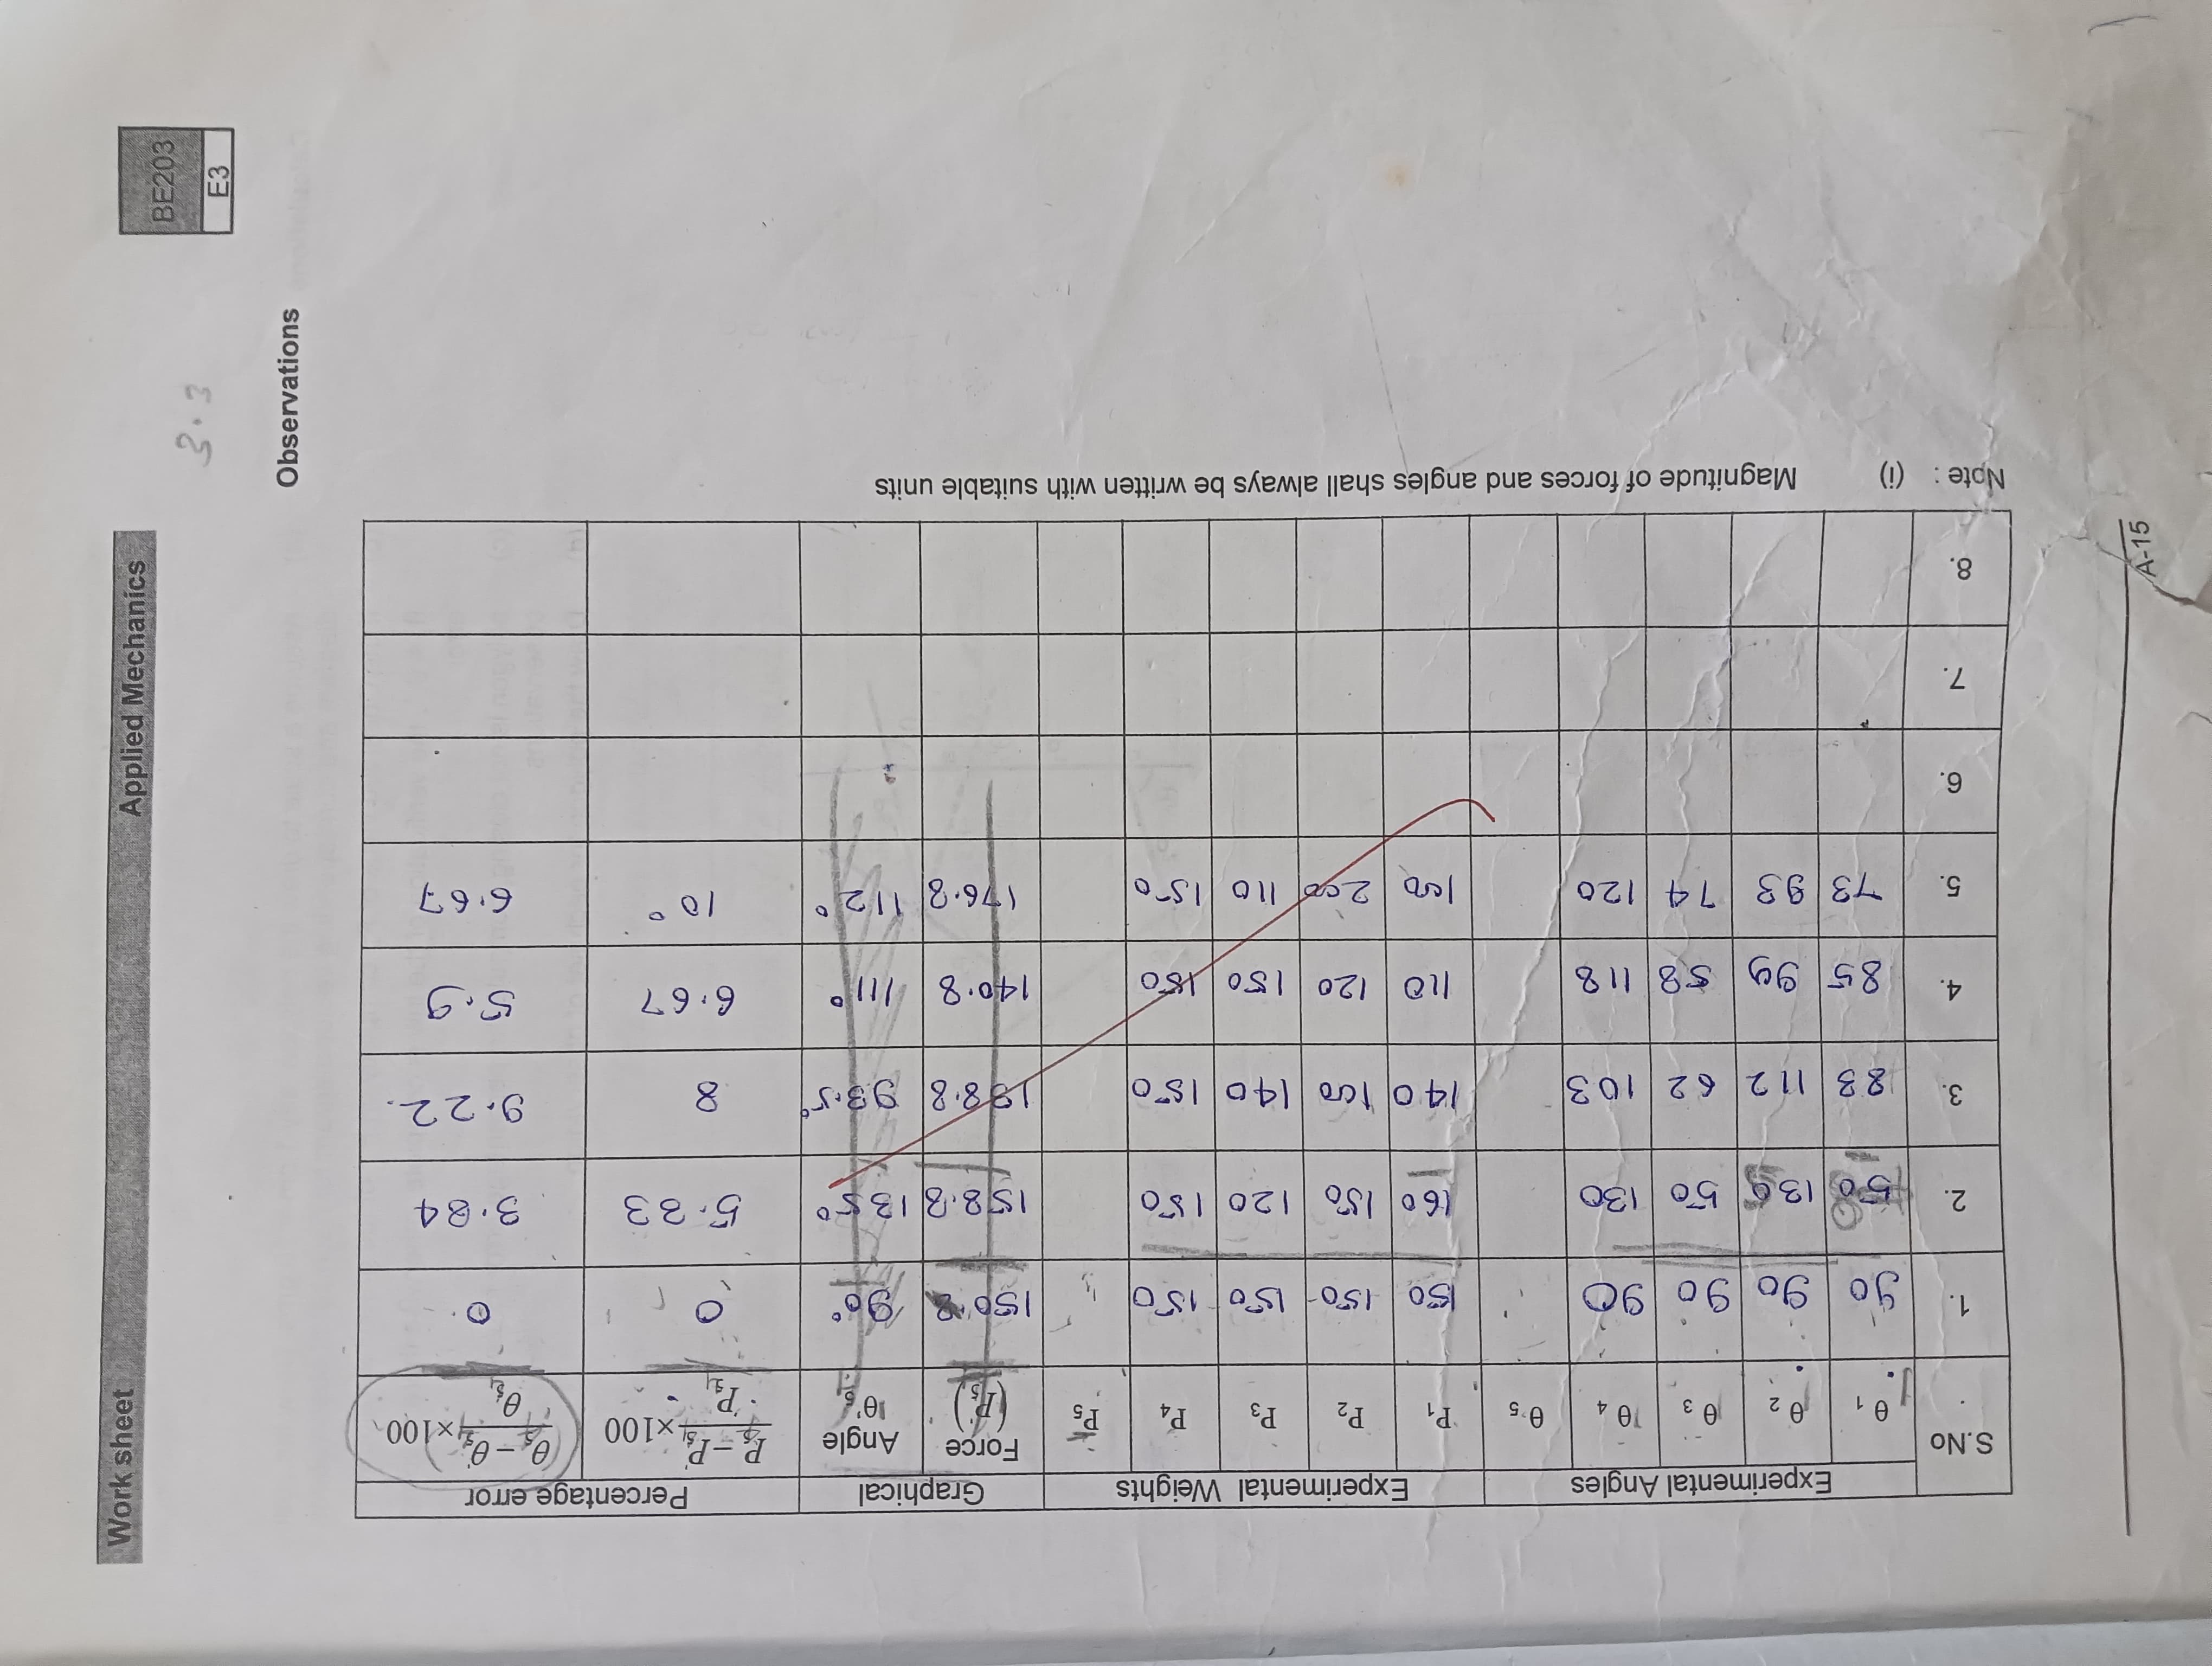 Work sheet Applied Mechanics
BE203
E3
Observations
3.3
S.No Experimental Angles Experimental Weights Graphical Percentage error
θ1 θ2 θ3 θ4 θ5 P1 P2 P3 P4 P5 Force (P'5) Angle θ'5 P5–P'5/P5 ×100 θ5–θ'5/θ5 ×100
1. 90 90 90 90 150 150 150 150 150 90° 0 0
2. 50 130 50 130 160 150 120 150 158.8 135° 5.33 3.84
3. 83 112 62 103 140 100 140 150 138.8 93.5° 8 9.22
4. 85 99 58 118 110 120 150 150 140.8 111° 6.67 5.9
5. 73 93 74 120 100 200 110 150 176.8 112° 10° 6.67
6.
7.
8.
Note : (i) Magnitude of forces and angles shall always be written with suitable units
A-15